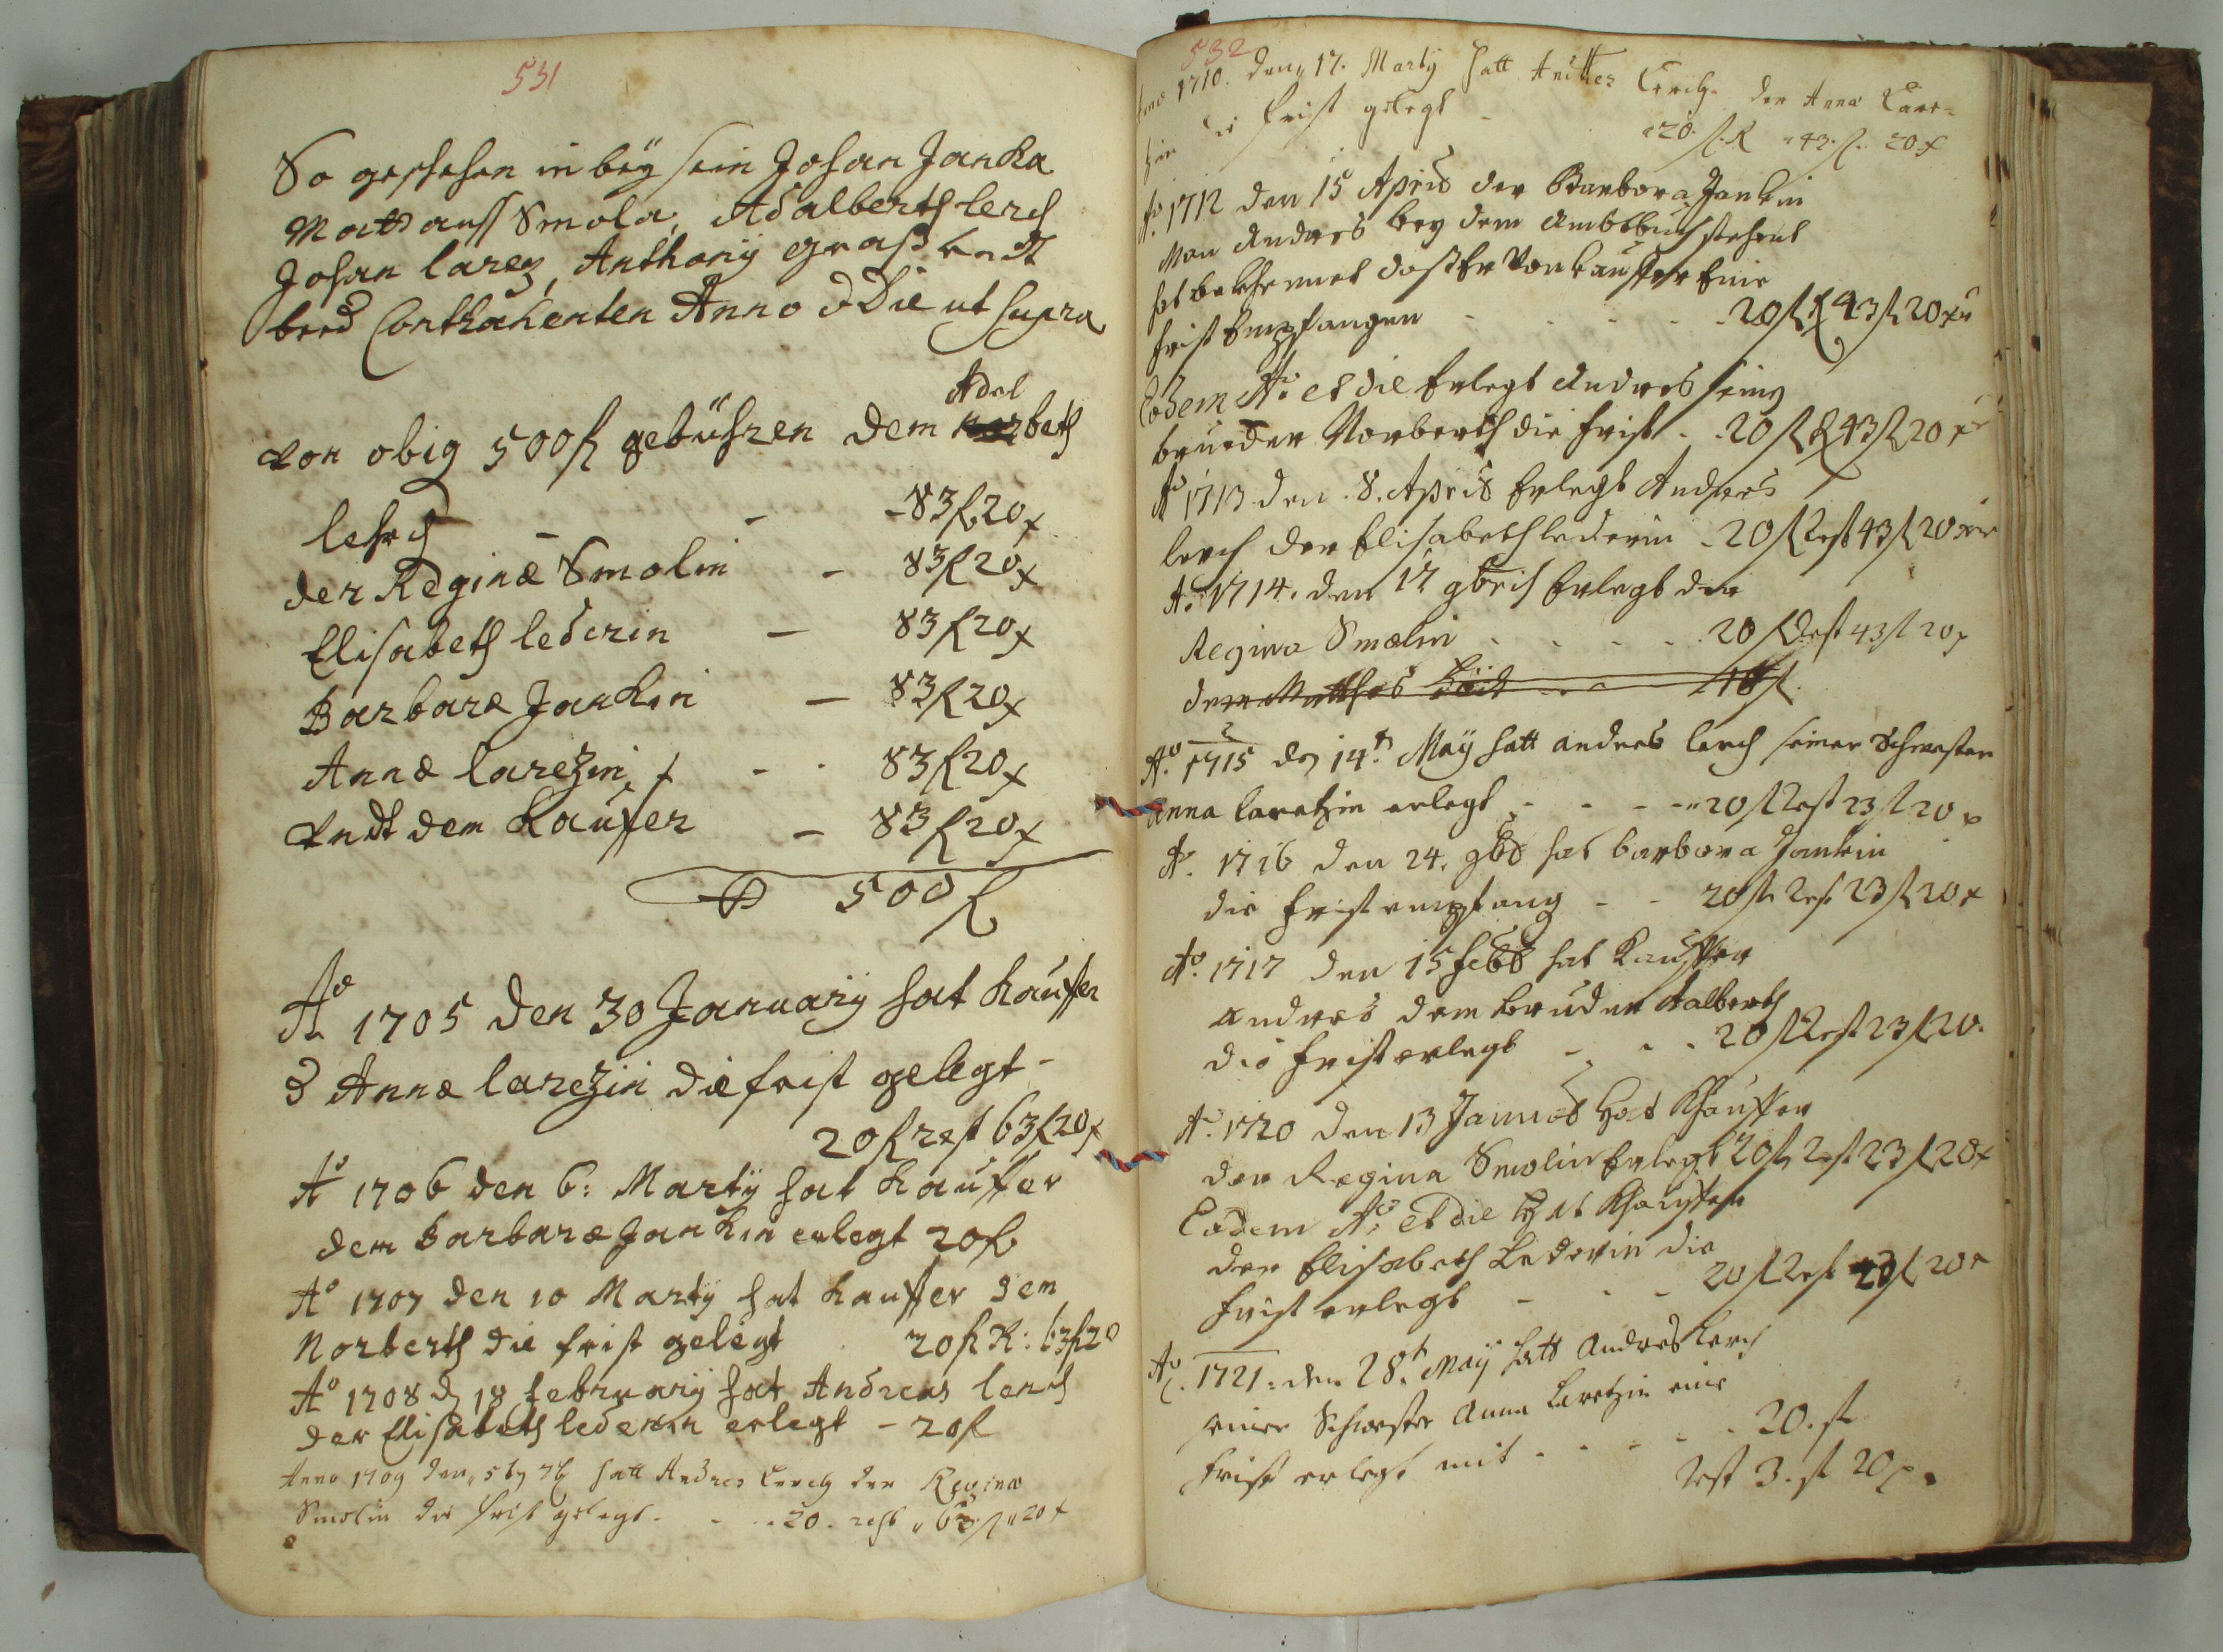 531
So geschehen in beÿ sein Johan Janka
Mathauss Smola, Adalberth lerch
Johan larez, Anthonÿ Graß
beed Contrahenten Anno & Die ut supra
Adal
von obig 500 fl gebühren dem norbeth
lehrch - - 83 fl 20 x
der Reginæ Smolin - 83 fl 20 x
Elisabeth lederin - 83 fl 20 x
Barbaræ Jankin - 83 fl 20 x
Annæ larezin - - 83 fl 20 x
vndt dem Kauffer - 83 fl 20 x
500 fl
Ao 1705 den 30 Januarÿ hat kauffer
d Annæ larezin die frist gelegt -
20 fl rest 63 fl 20 x
Ao 1706 den 6: Martÿ hat kauffer
dem Barbaræ Jankin erlegt 20 fl
Ao 1707 den 10 Martÿ hat kauffer dem
Norberth die frist gelegt 20 fl R: 63 fl 20
Ao 1708 d 18 februarÿ hat Andreas lerch
der Elisabeth lederin erlegt - 20 fl
Anno 1709 den hatt Andres Lerch der Regina
Smolin die frist gelegt - - - 20. rest 63 fl 20 x
532
Anno 1710. den 17. Martÿ hatt Lerch. der Anna Lare-
zin die frist gelegt - 20 fl. R 43. fl. 20 x
Ao. 1712 den 15 Apris der Barbora Jankin
Man Andres beÿ dem Ambtbuch stehent
hat bekhennet daß Er von kauffer Eine
frist Empfangen - - - - 20 fl R 43 fl 20 xr
Eodem Ao et die Erlegt Andres seinen
brueder Norberth die frist - - 20 fl R 43 fl 20 xr
Ao 1713 den . 8. Apris Erlegt Andres
lerch der Elisabeth lederin - 20 fl Rest 43 fl 20 xr
Ao. 1714. den 17 9bris Erlegt der
Regina Smolin - - - - 20 fl Rest 43 fl 20 x
dem Mathes
Ao. 1715 den 14t. Maÿ hatt andres lerch seiner Schwester
Anna laretzin erlegt - - - - 20 fl Rest 23 fl 20 x
Ao. 1716 den 24. 9bris hat barbora Jankin
die frist empfang - - 20 fl Rest 23 fl 20 x
Ao. 1717 den 15 febr hat Kauffer
Andres dem bruder Aalberth
die frist erlegt - - - 20 fl Rest 23 fl 20.
Ao. 1720 den 13 Januar hat Khauffer
der Regina Smolin Erlegt 20 fl Rest 23 fl 20 x
Eodem Ao. et die Hat Khauffer
der Elisabeth Lederin die
frist erlegt - - - 20 fl Rest 23 fl 20 x
Ao. 1721: den 28t. Maÿ hatt Andres Lerch
seiner Schwester Anna Laretzin eine
frist erlegt mit - - - - - 20. fl
Rest 3. fl 20 x.